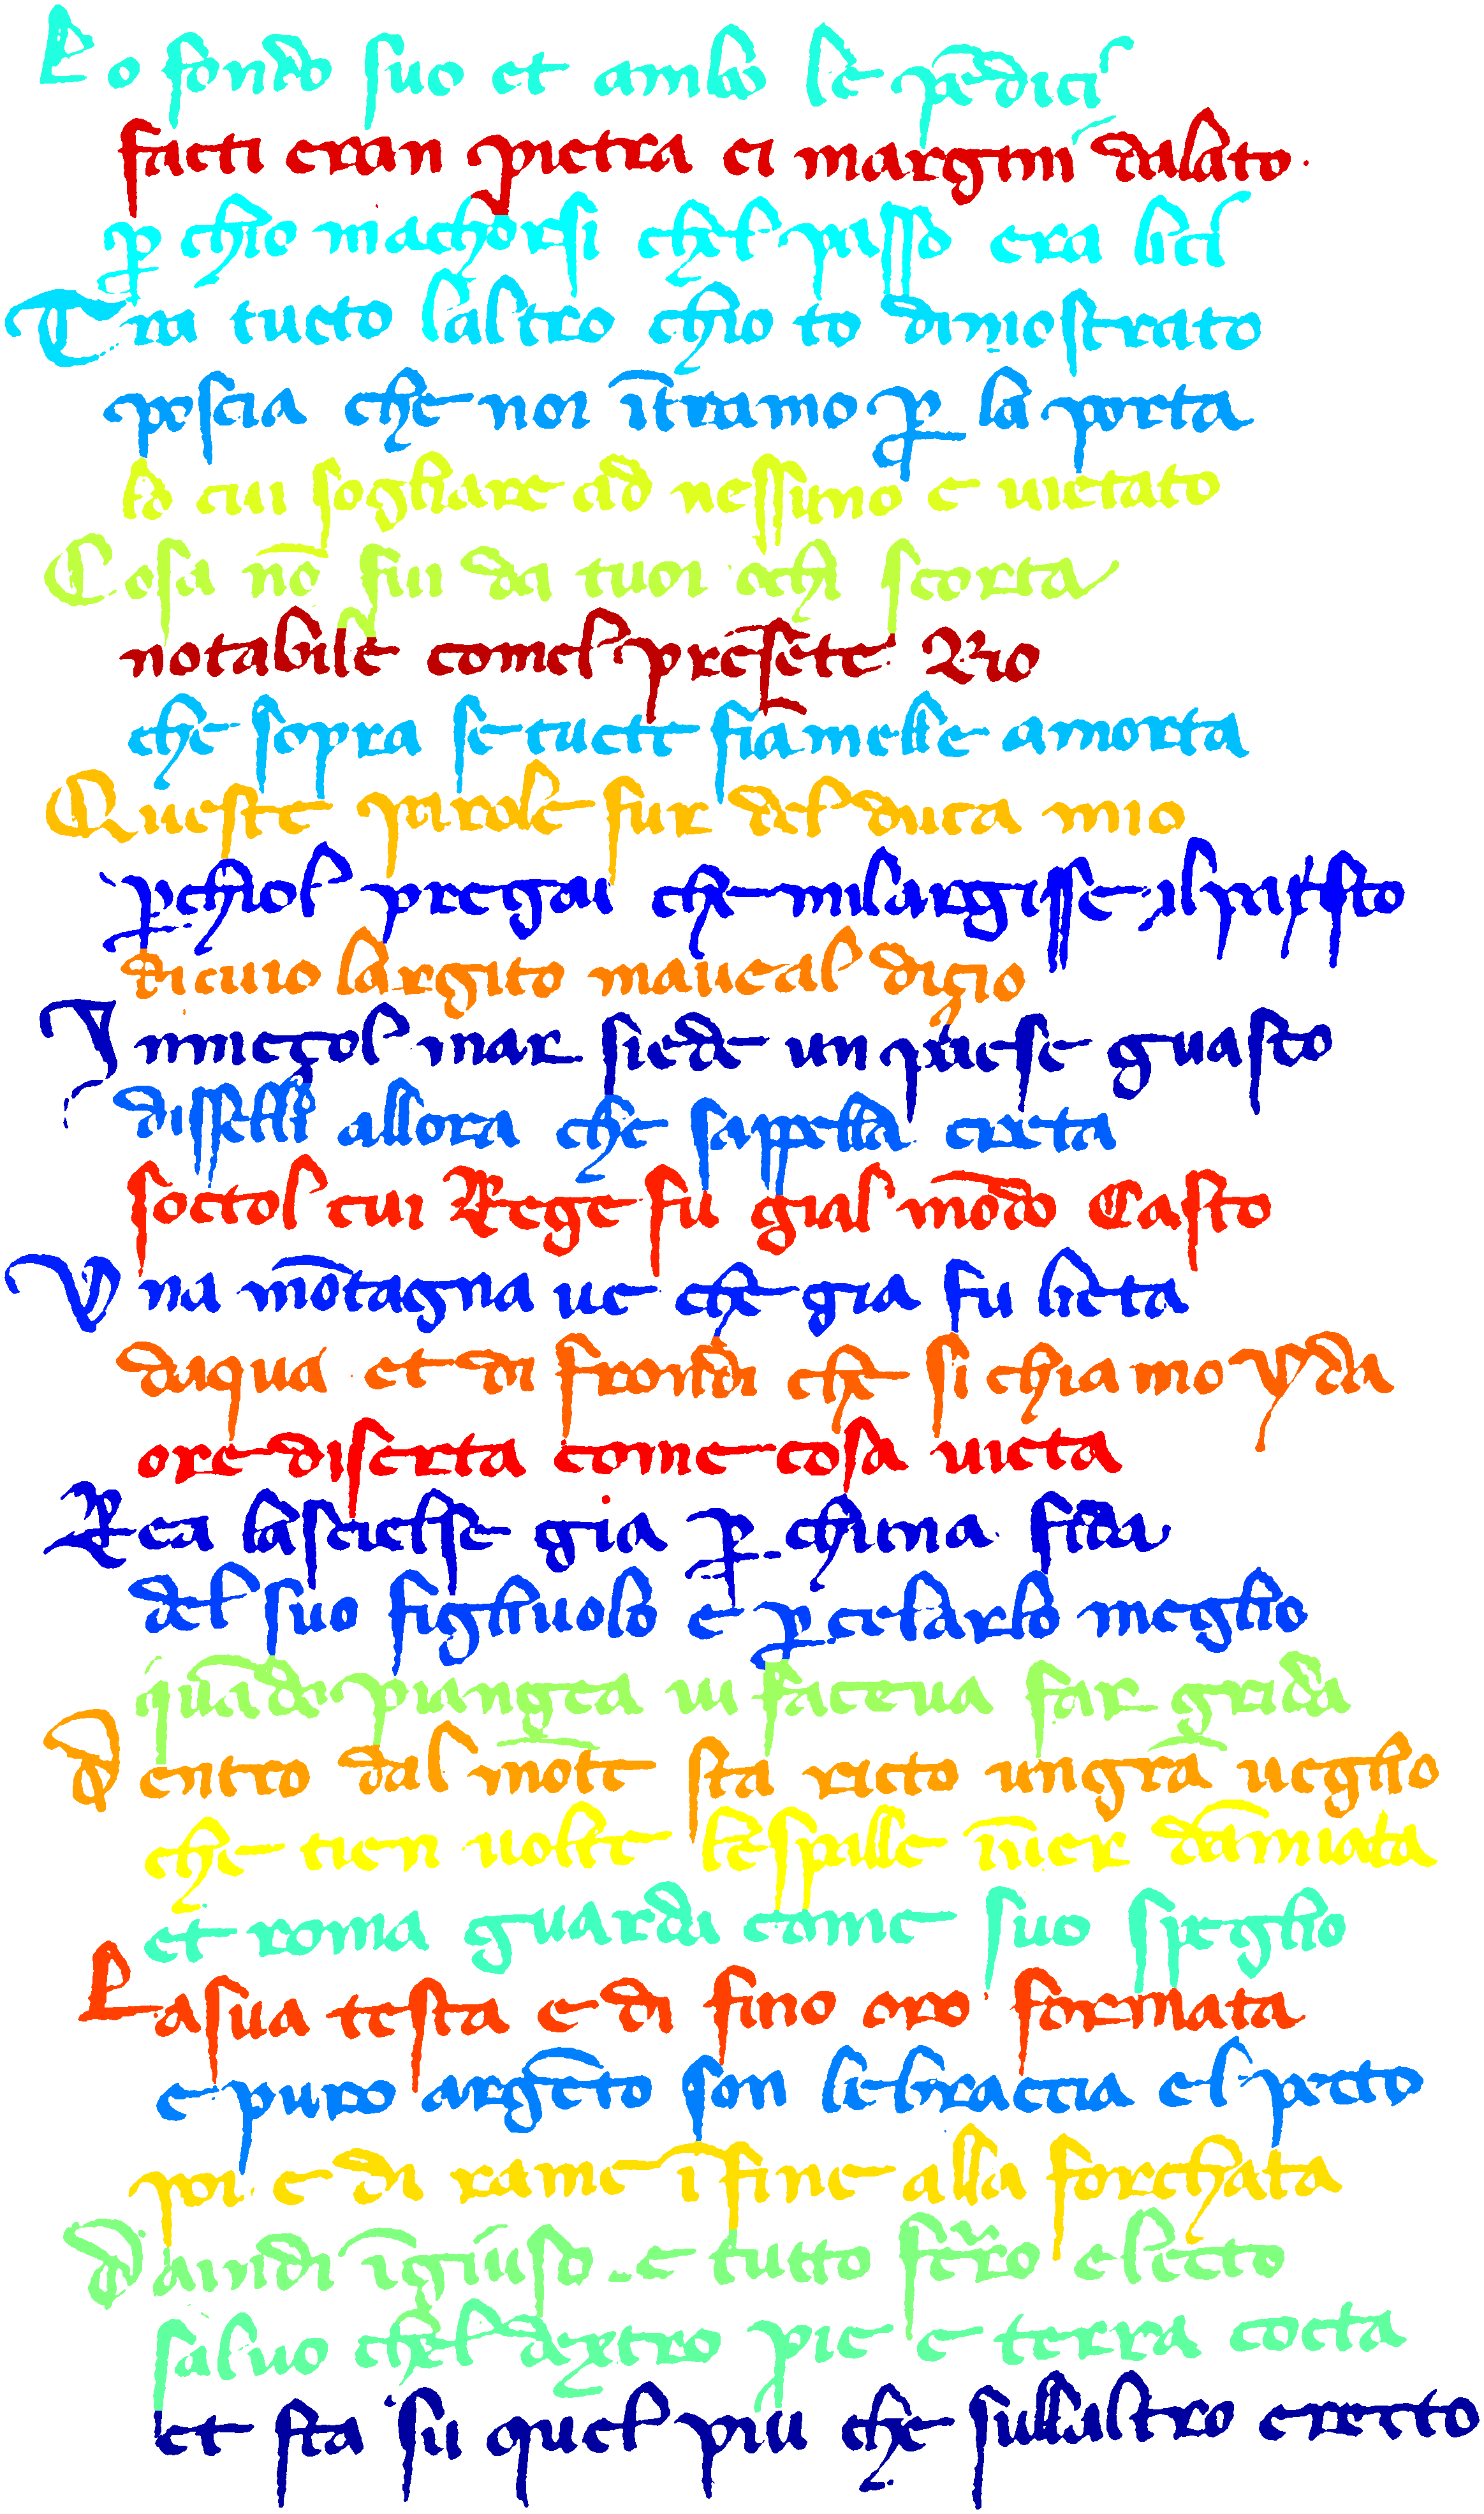 Lo fondo suo et ambo le pēdici
facti eran pietra ei margini dallato.
p chio maccorsi chel passo era lici
Tra tucto laltro chio to dimostrato
poscia che noi ītramo p la porta
lo cui sogliare ad nessuno e uietato
Cosa nō fu dai tuoi occhi scorta
notabile come el presēte rio
che sopra se tucte fiamelle amorta
Queste parole fur del duca mio
p chiol pregai che mi largisse il pasto
di cui largito mauea el disio
In mezol mar siede un paese guasto
disselli allora che sappella creta
soctol cui Rege fu gial mōdo casto
Una mōtagna ue che gia fu lieta
daqua et di fronda che si chiamo yda
ore diserta come cosa uieta
Rea la scelse gia p chuna fida
del suo figliuolo e p celarlo meglio
quādo piangea ui facea far grida
Dentro dal mōte sta recto un grā ueglio
che tien uolte le spalle īuer dāmiata
et roma guarda come suo speglio
La sua testa e di fino oro formata
e puro argēto son le braccia el pecto
poi e di rame īfino alla forchata
Da indi īgiuso e tutto ferro electo
saluo chel dextro pie e terra cocta
et sta su quel piu che sullaltro erecto